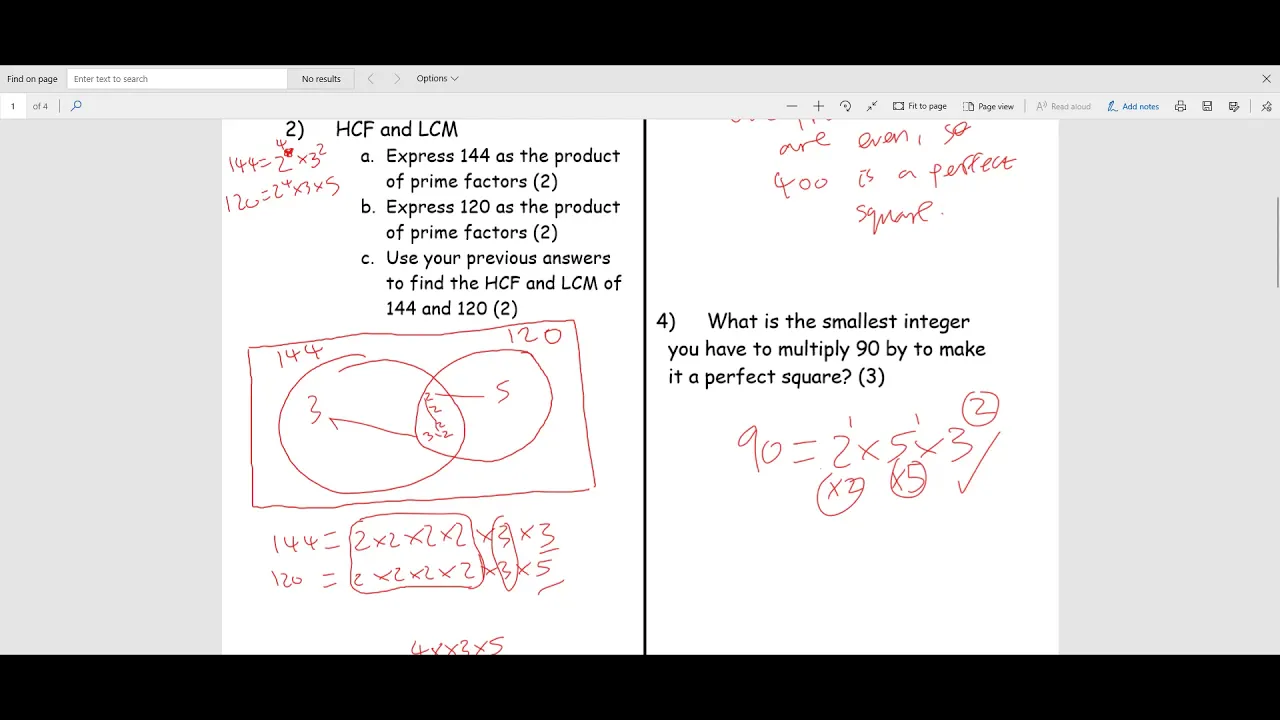 Find on page
Enter text to search
No results
Options
1
of 4
Fit to page
Page view
Read aloud
Add notes
2) HCF and LCM
a. Express 144 as the product
of prime factors (2)
b. Express 120 as the product
of prime factors (2)
c. Use your previous answers
to find the HCF and LCM of
144 and 120 (2)
144=2⁴×3²
120=2⁴×3×5
144
120
3
2
2
2
3 2
5
144 = 2×2×2×2 ×3×3
120 = 2×2×2×2 ×3×5
are even, so
400 is a perfect
square.
4) What is the smallest integer
you have to multiply 90 by to make
it a perfect square? (3)
90 = 2¹×5¹×3²
×2 ×5